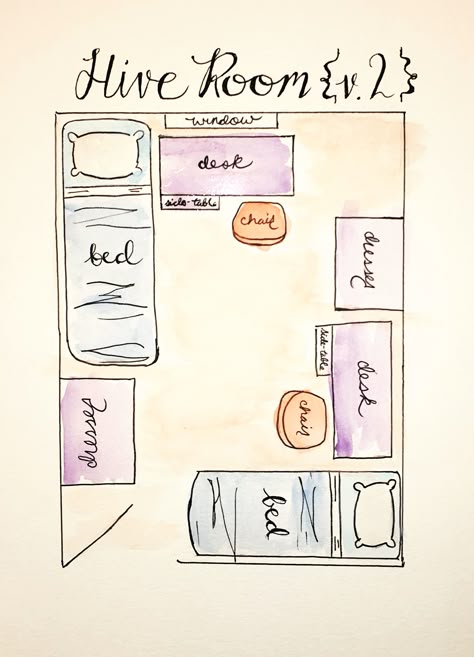 Hive Room {v.2}
window
desk
side-table
chair
bed
dresser
side-table
desk
chair
dresser
bed